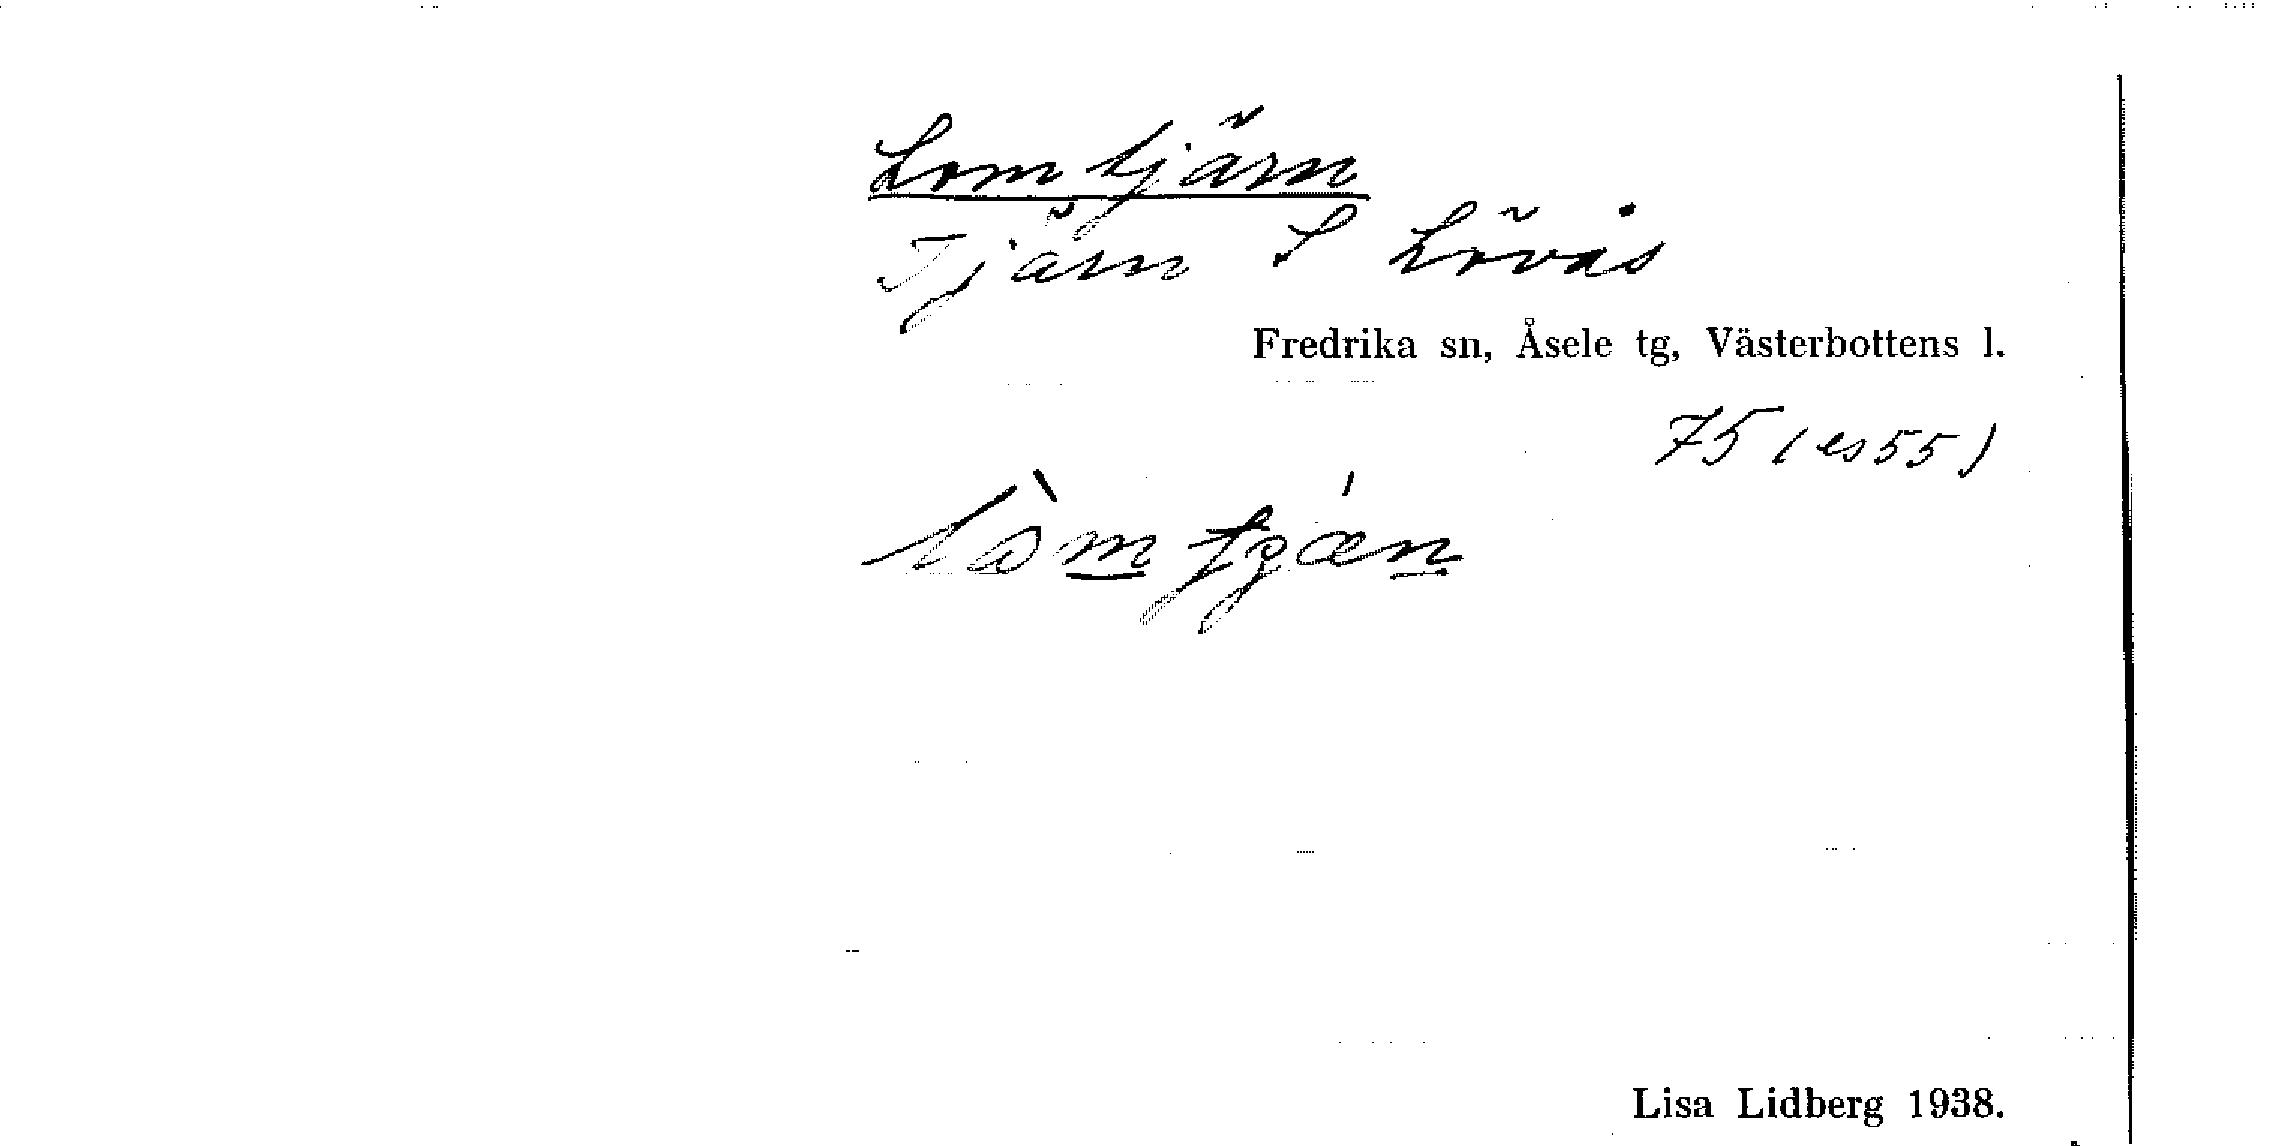 Lomtjärn
Tjärn S Lövås
Fredrika sn, Åsele tg, Västerbottens l.
75 (es 55)
Lisa Lidberg 1938.